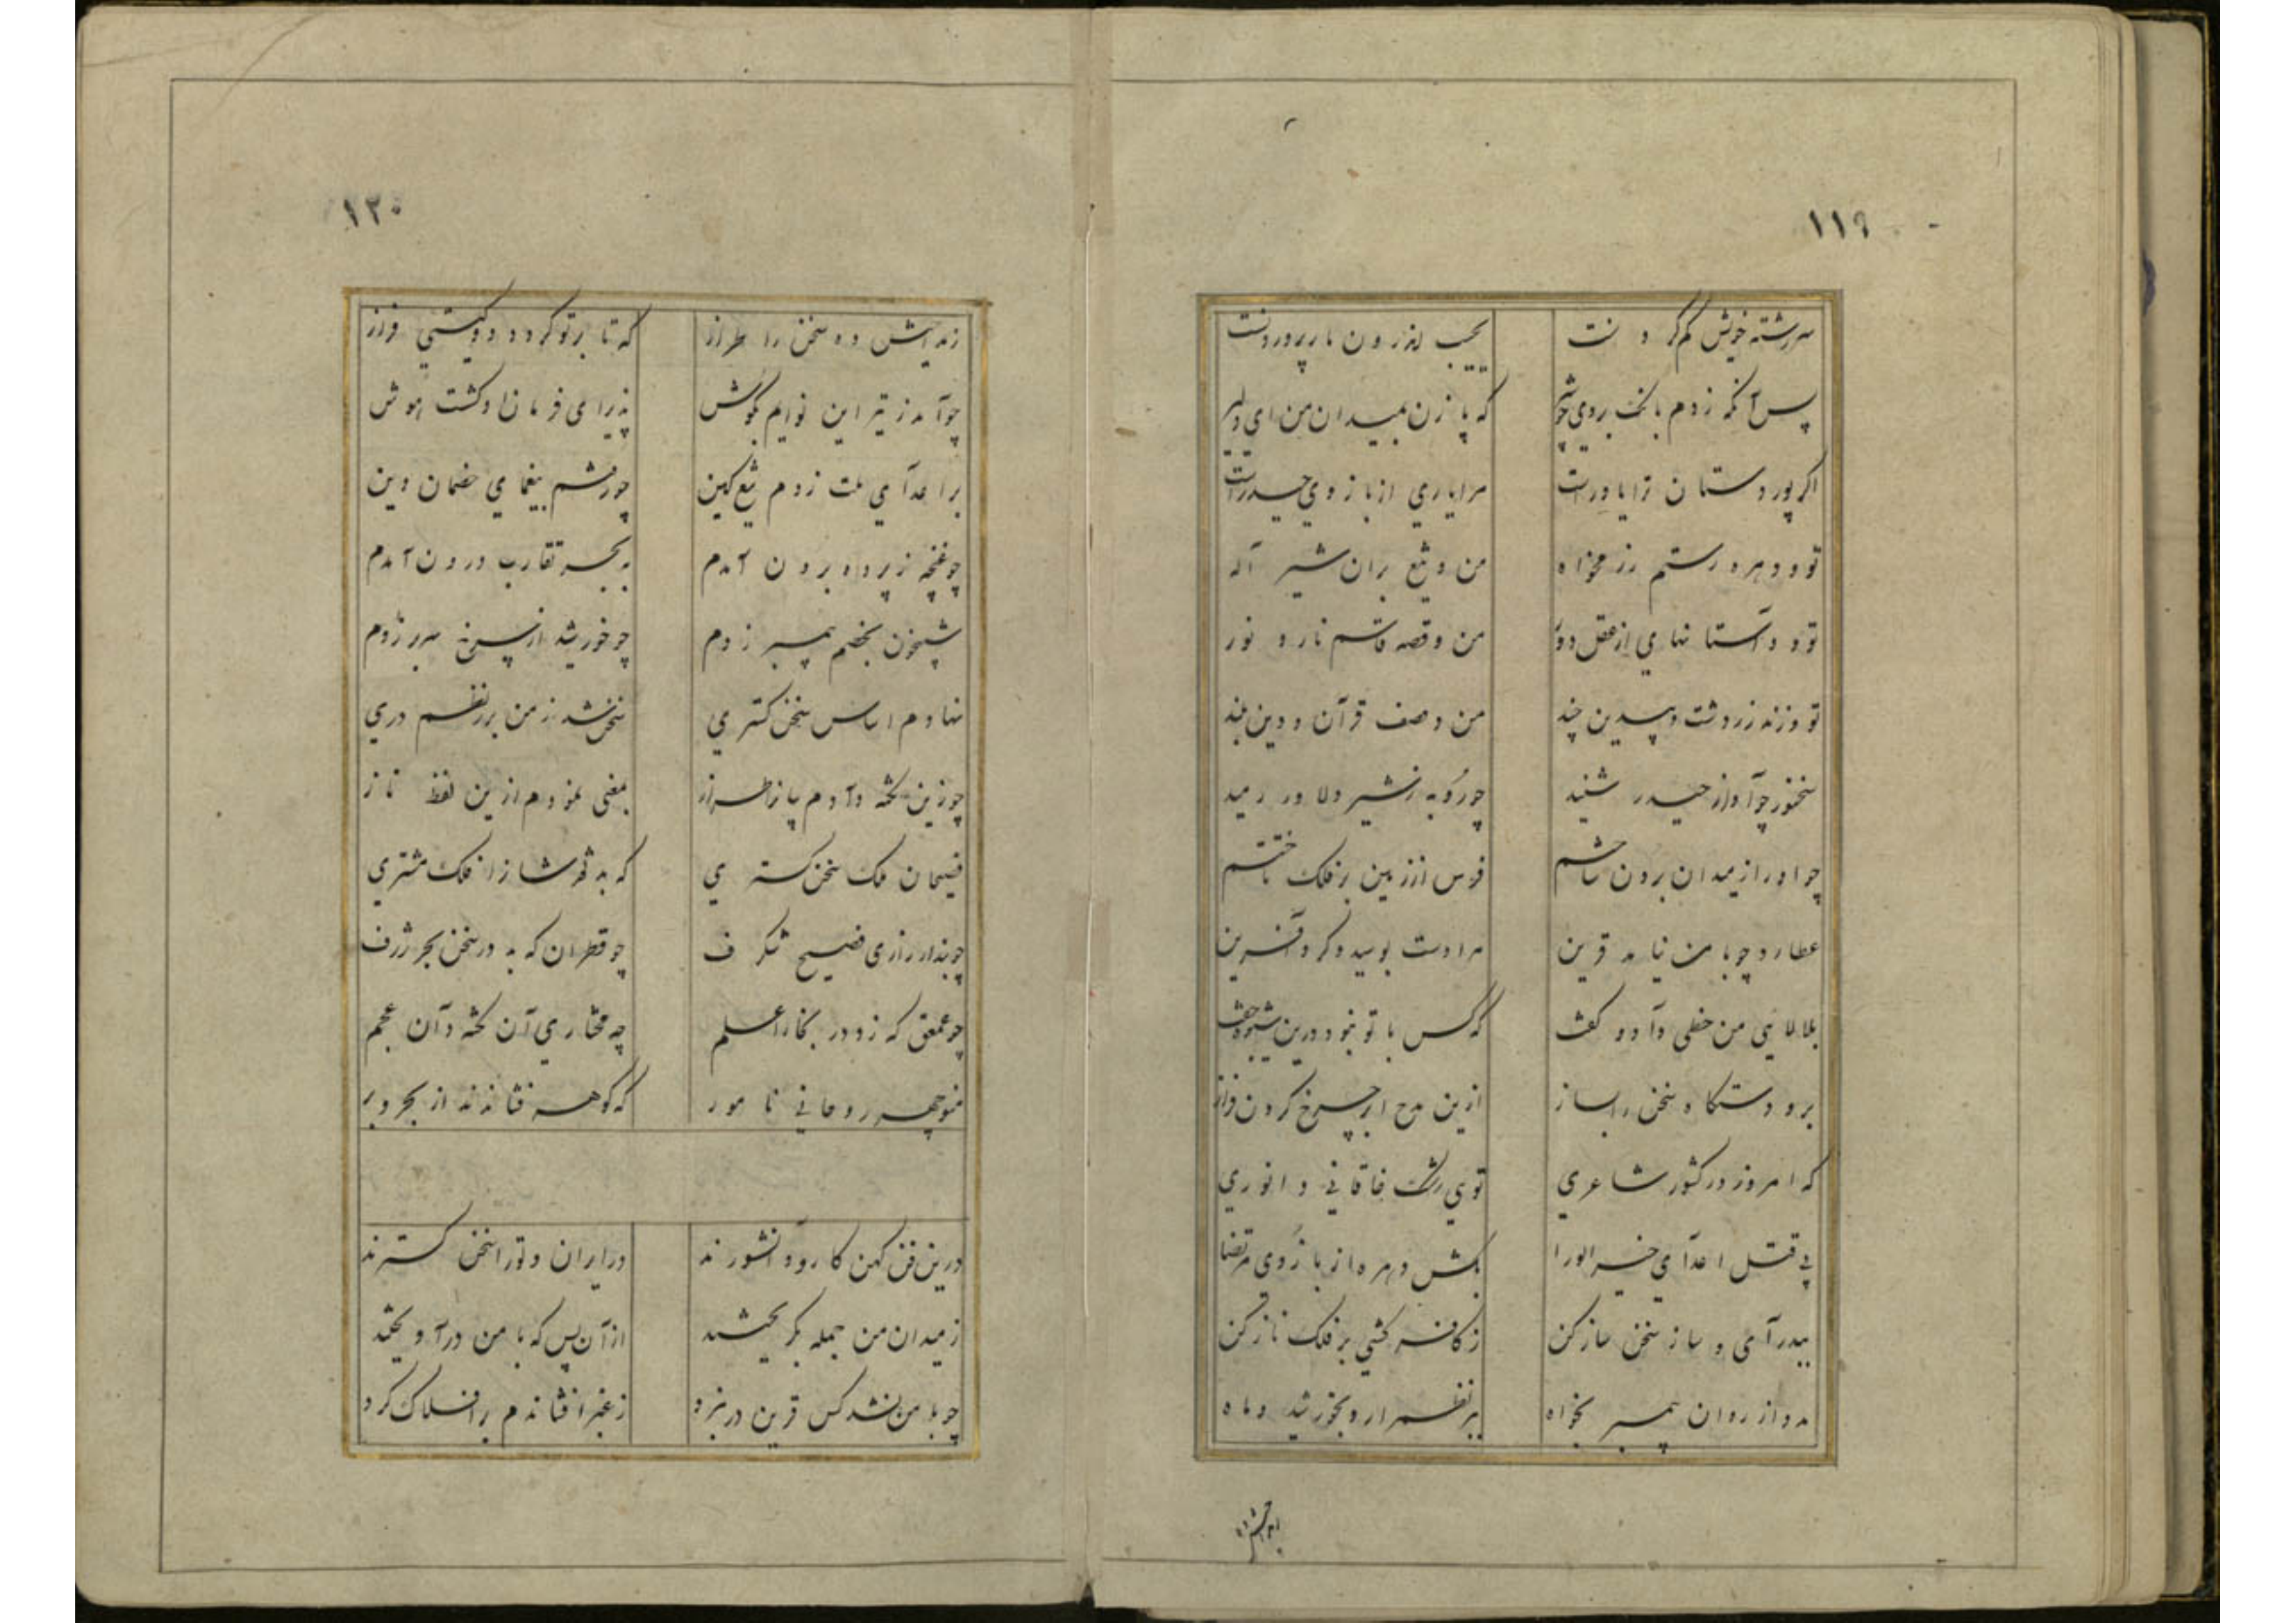 ۱۱۹
سررشته خویش گم کردنت بجیب اندرون مار پروردنت
پس آنگه زدم بانگ بروی چو شیر که پا زن بمیدان من ای دلیر
اگر پور دستان ترا یاورست مرا یاری از بازوی حیدرست
تو و دهره رستم رزمخواه من و تیغ بران شیر آله
تو و داستانهای از عقل دور من و قصه قاسم نار و نور
تو و زند زردشت و پند من وصف قرآن و دین بلند
سخنور چو آواز حیدر شنید چو روبه ز شیر دلاور رمید
چو او را ز میدان برون تاختم فرس از زمین بر فلک تاختم
عطارد چو با من نیامد قرین مرا دست بوسید و کرد آفرین
بلالایی من خطی داد و گفت که کس با تو نبود درین شیوه جفت
برو دستگاه سخن را بساز ازین مدح بر چرخ گردون فراز
که امروز در کشور شاعری تویی رشک خاقانی و انوری
پی قتل اعدآی خیر الورا بکش دهره از بازوی مرتضا
بیدر آی و ساز سخن ساز کن ز کافر کشی بر فلک ناز کن
مدد از روان پیمبر بخواه ببر نظم اردو بخورشید و ماه
۱۲۰
ز مدحش ده سخن را طراز که تا بر تو گردد دو گیتی فراز
چو آمد ز تیر این نوایم بگوش پذیرای فرمان او گشت هوش
بر اعدآی ملت زدم تیغ کین چو رفتم بیغمای خصمان دین
چو غنچه ز پرده برون آمدم به بحر تقارب درون آمدم
شبیخون بخصم پیمبر زدم چو خورشید از چرخ سر بر زدم
نهادم اساس سخن گستری سخن شد ز من بر ز نظم دری
چو زین نکته دآدم بیاز طراز بمعنی نمودم ازین لفظ ناز
فصیحان ملک سخن گستری که بد قدرشان از فلک مشتری
چو بندار رازی فصیح شگرف چو قطران که بد در سخن بحر ژرف
چو عمعق که زد در بخارا علم چه مختاری آن نکته دآن عجم
منوچهر روحانی نامور که گوهر فشاندند از بحر و بر
درین فن کهن کار و دانشورند در ایران و توران سخن گسترند
ز میدان من جمله بگریختند از آن پس که با من درآویختند
چو با من نشد کس قرین در نبرد ز عنبر افشاندم بر افلاک گرد